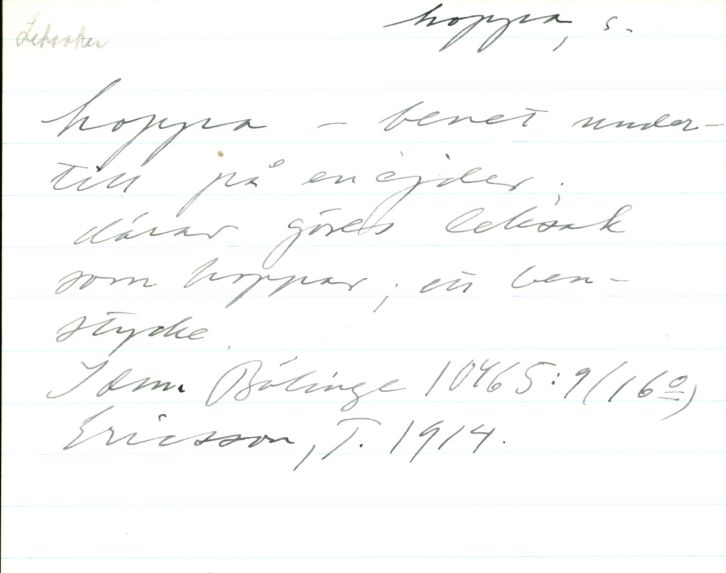 Leksaker
hoppa, s.
hoppa – benet under-
till på en ejder.
därav göres leksak
som hoppar; ett ben-
stycke.
Sdm. Bälinge 10465:9 (16º)
Ericsson, T. 1914.